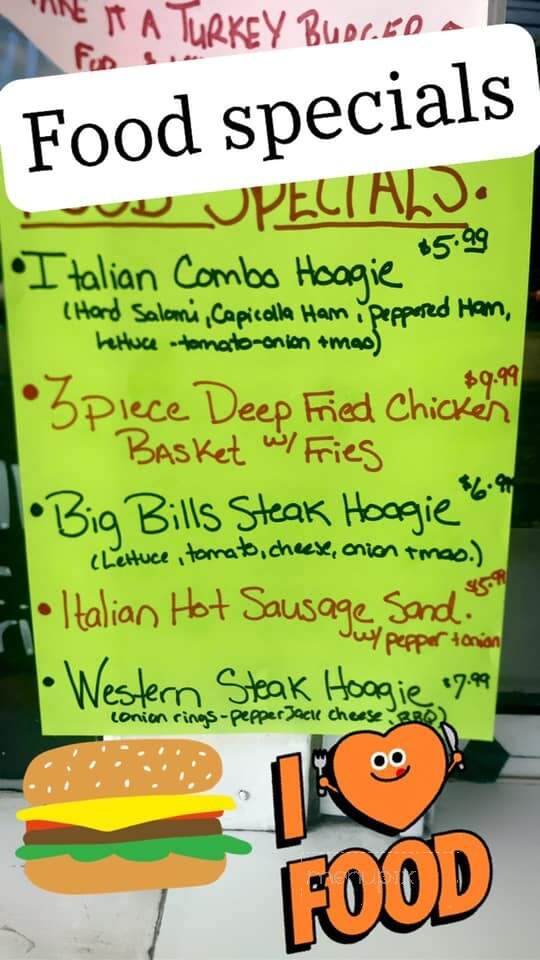 IT A TURKEY BURGER
Food specials
FOOD SPECIALS.
$5.99
• Italian Combo Hoagie
(Hard Salami, Capicolla Ham, Peppered Ham,
Lettuce - tomato-onion + mao)
$9.99
• 3 Piece Deep Fried Chicken
Basket w/ Fries
$6.99
• Big Bills Steak Hoagie
(Lettuce, tomato, cheese, onion + mao.)
$5.99
• Italian Hot Sausage Sand.
w/ pepper + onion
• Western Steak Hoagie $7.99
(onion rings - pepper Jack cheese, BBQ)
I
FOOD
menupix